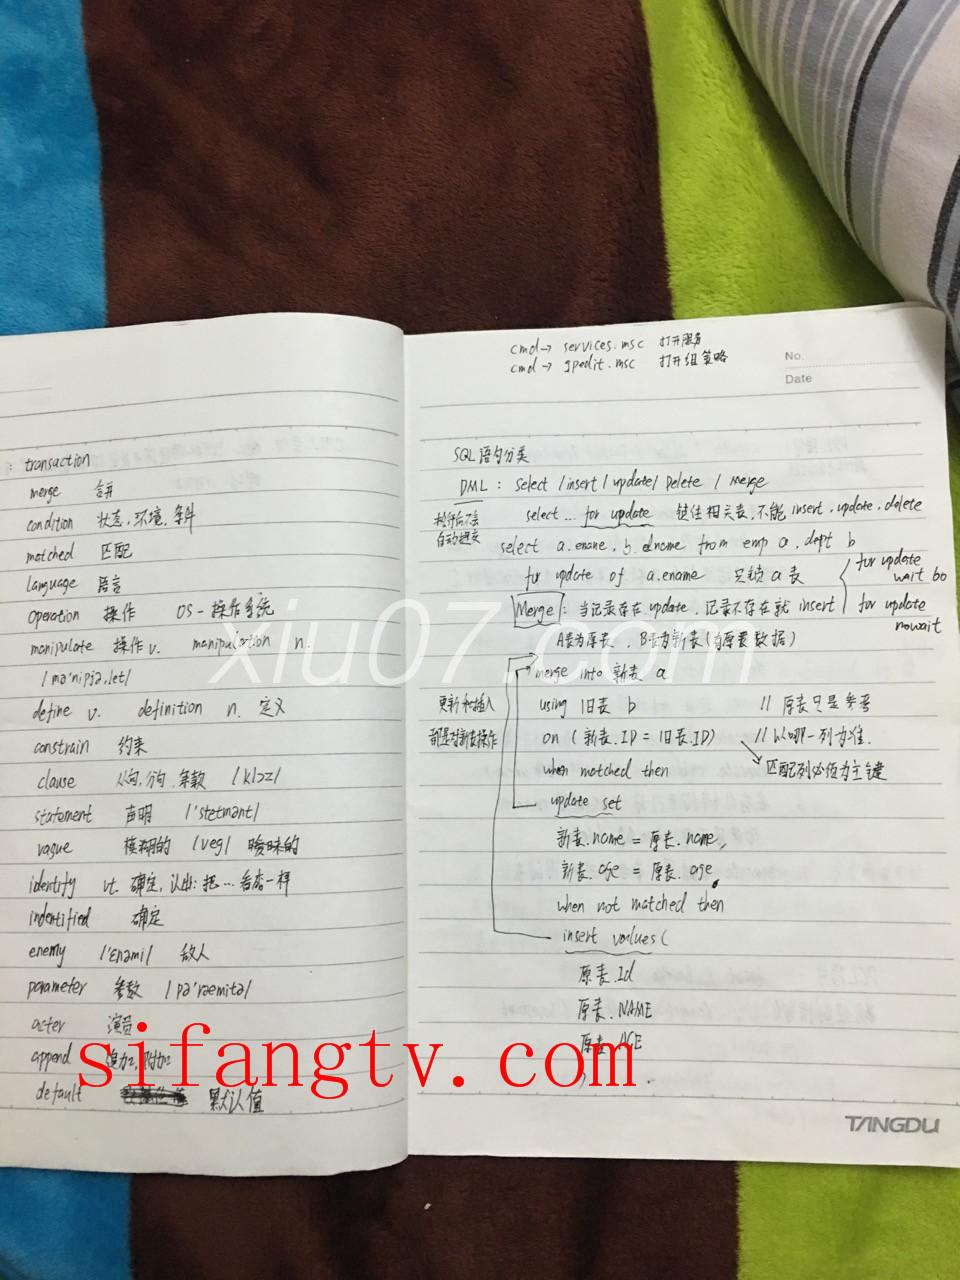 : transaction
merge 合并
condition 状态,环境,条件
matched 匹配
language 语言
operation 操作 OS-操作系统
manipulate 操作v. manipulation n.
/mə'nipjə,let/
define v. definition n. 定义
constrain 约束
clause 从句,分句,条款 /klɔz/
statement 声明 /'stetmənt/
vague 模糊的 /veg/ 暧昧的
identify vt. 确定,认出;把…看成一样
indentified 确定
enemy /'ɛnəmi/ 敌人
parameter 参数 /pə'ræmitə/
acter 演员
append 追加,附加
default 默认值
cmd→ services.msc 打开服务
cmd→ gpedit.msc 打开组策略
No.
Date
SQL语句分类
DML: select /insert / update/ Delete / Merge
执行后不会
自动提交
select ... for update 锁住相关表,不能 insert, update, delete
select a.ename, b.dname from emp a, dept b
for update of a.ename 只锁a表
for update
wait 60
for update
nowait
Merge: 当记录存在update,记录不存在就 insert
A表为原表,B表为新表(为原表数据)
merge into 新表 a
更新和插入
都是对新表操作
using 旧表 b // 原表只是参考
on (新表.ID = 旧表.ID) // 以哪一列为准.
匹配列必须为主键
when matched then
update set
新表.name = 原表.name,
新表.age = 原表.age
when not matched then
insert values(
原表.Id
原表.NAME
原表.AGE
)
TANGDU
xiu07.com
sifangtv.com